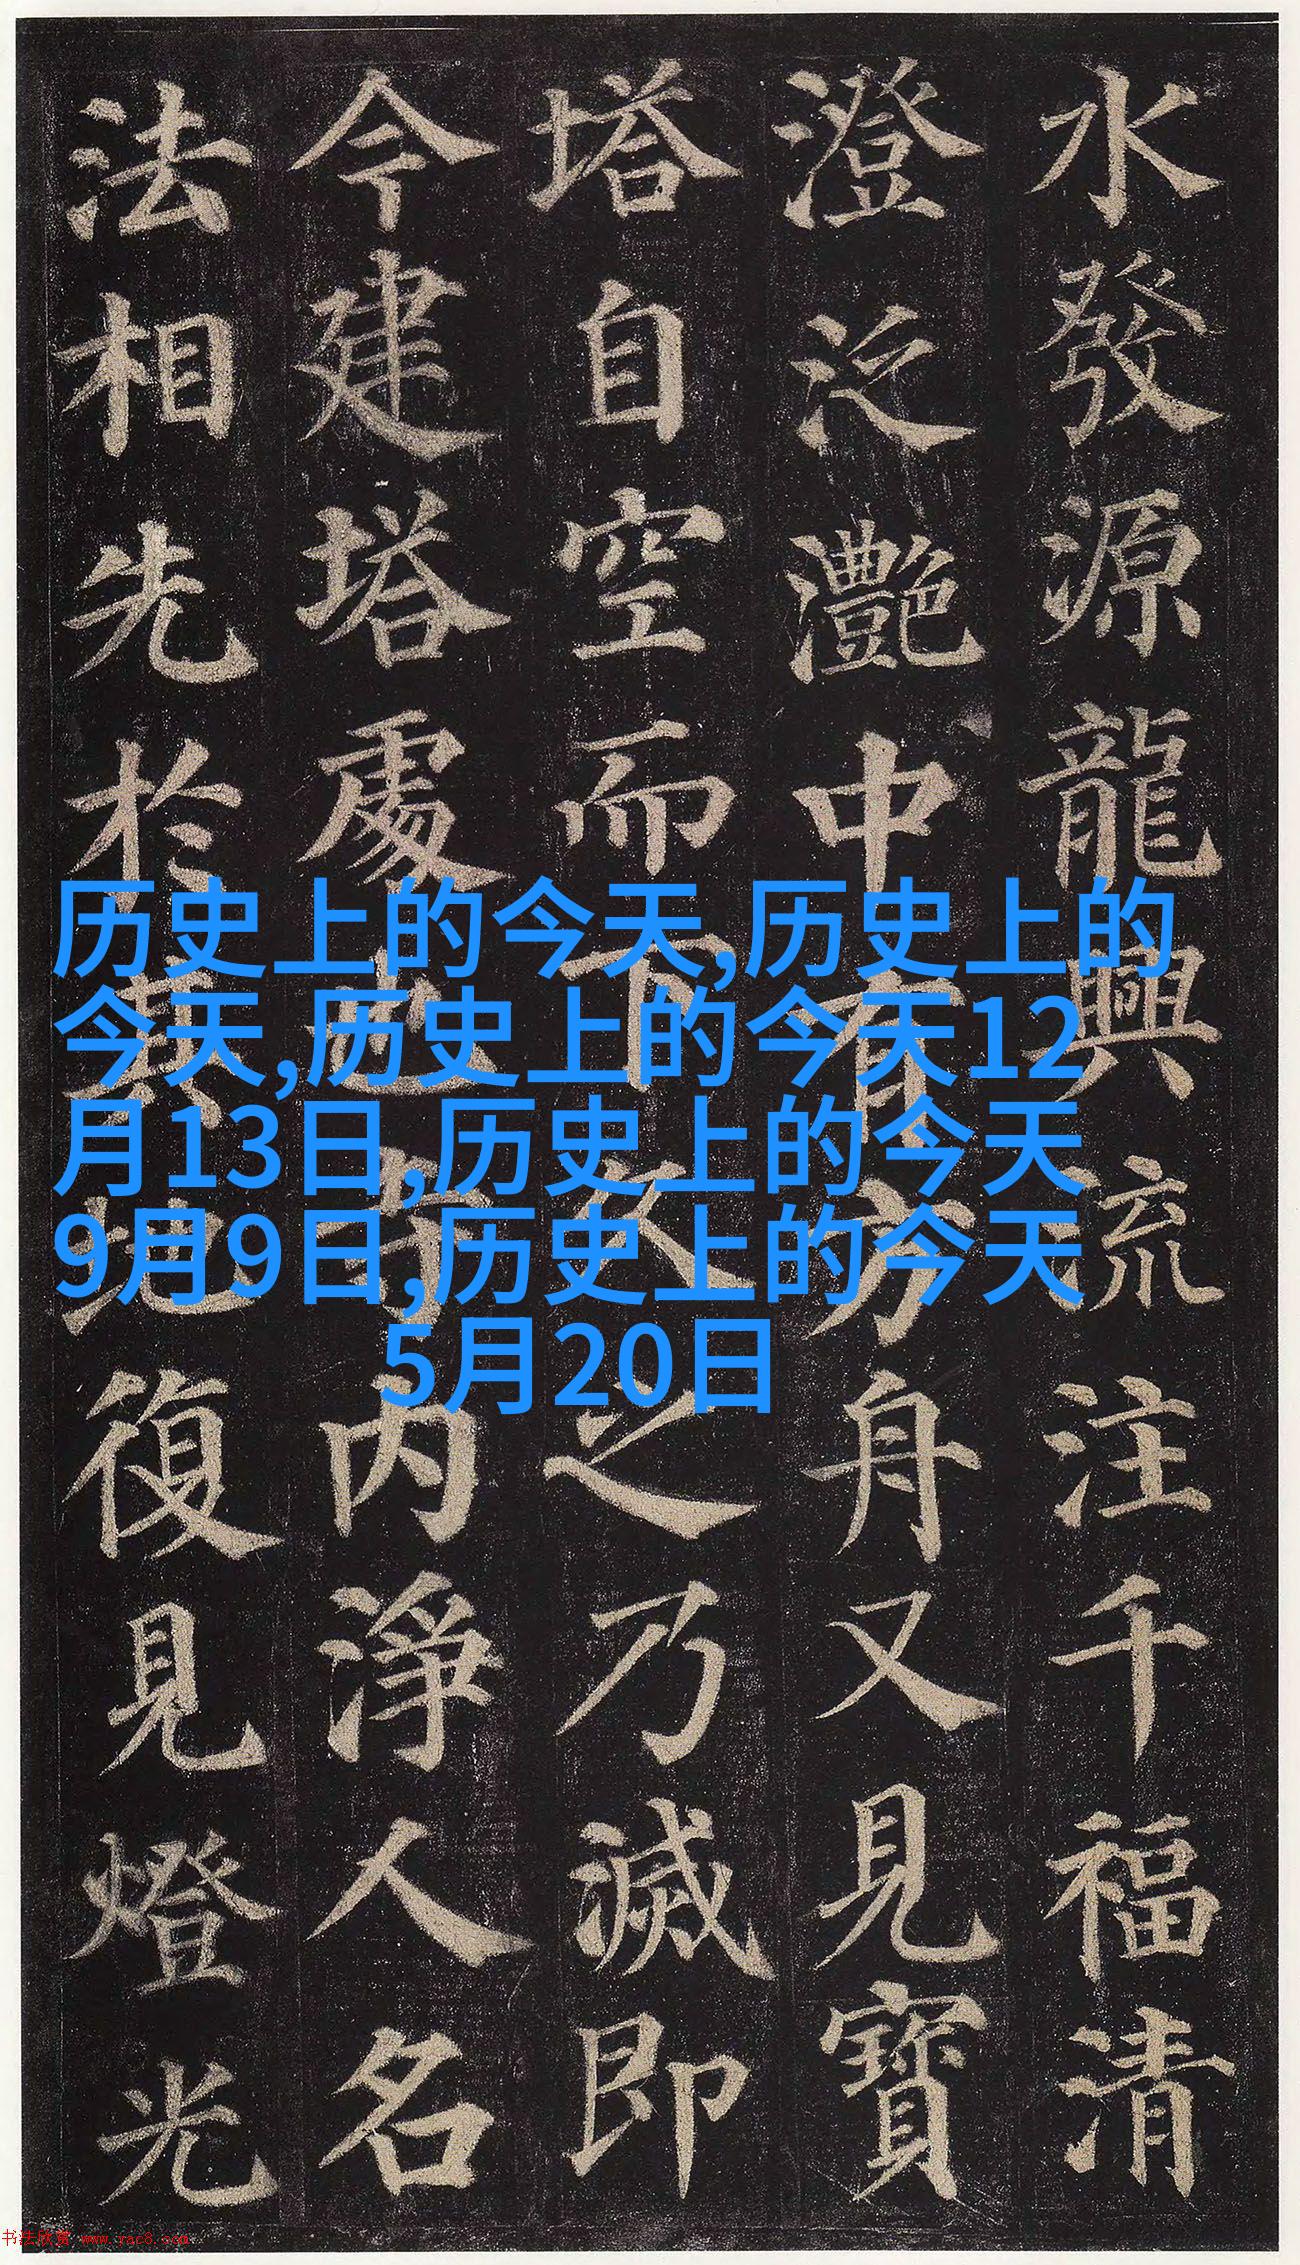 水發源龍興流注千福清
澄泛灩中有方舟又見寶
塔自空而下久之乃滅即
今建塔處也寺内淨人名
法相先於其地復見燈光
历史上的今天,历史上的
今天,历史上的今天12
月13日,历史上的今天
9月9日,历史上的今天
5月20日
书法欣赏 www.yac8.com